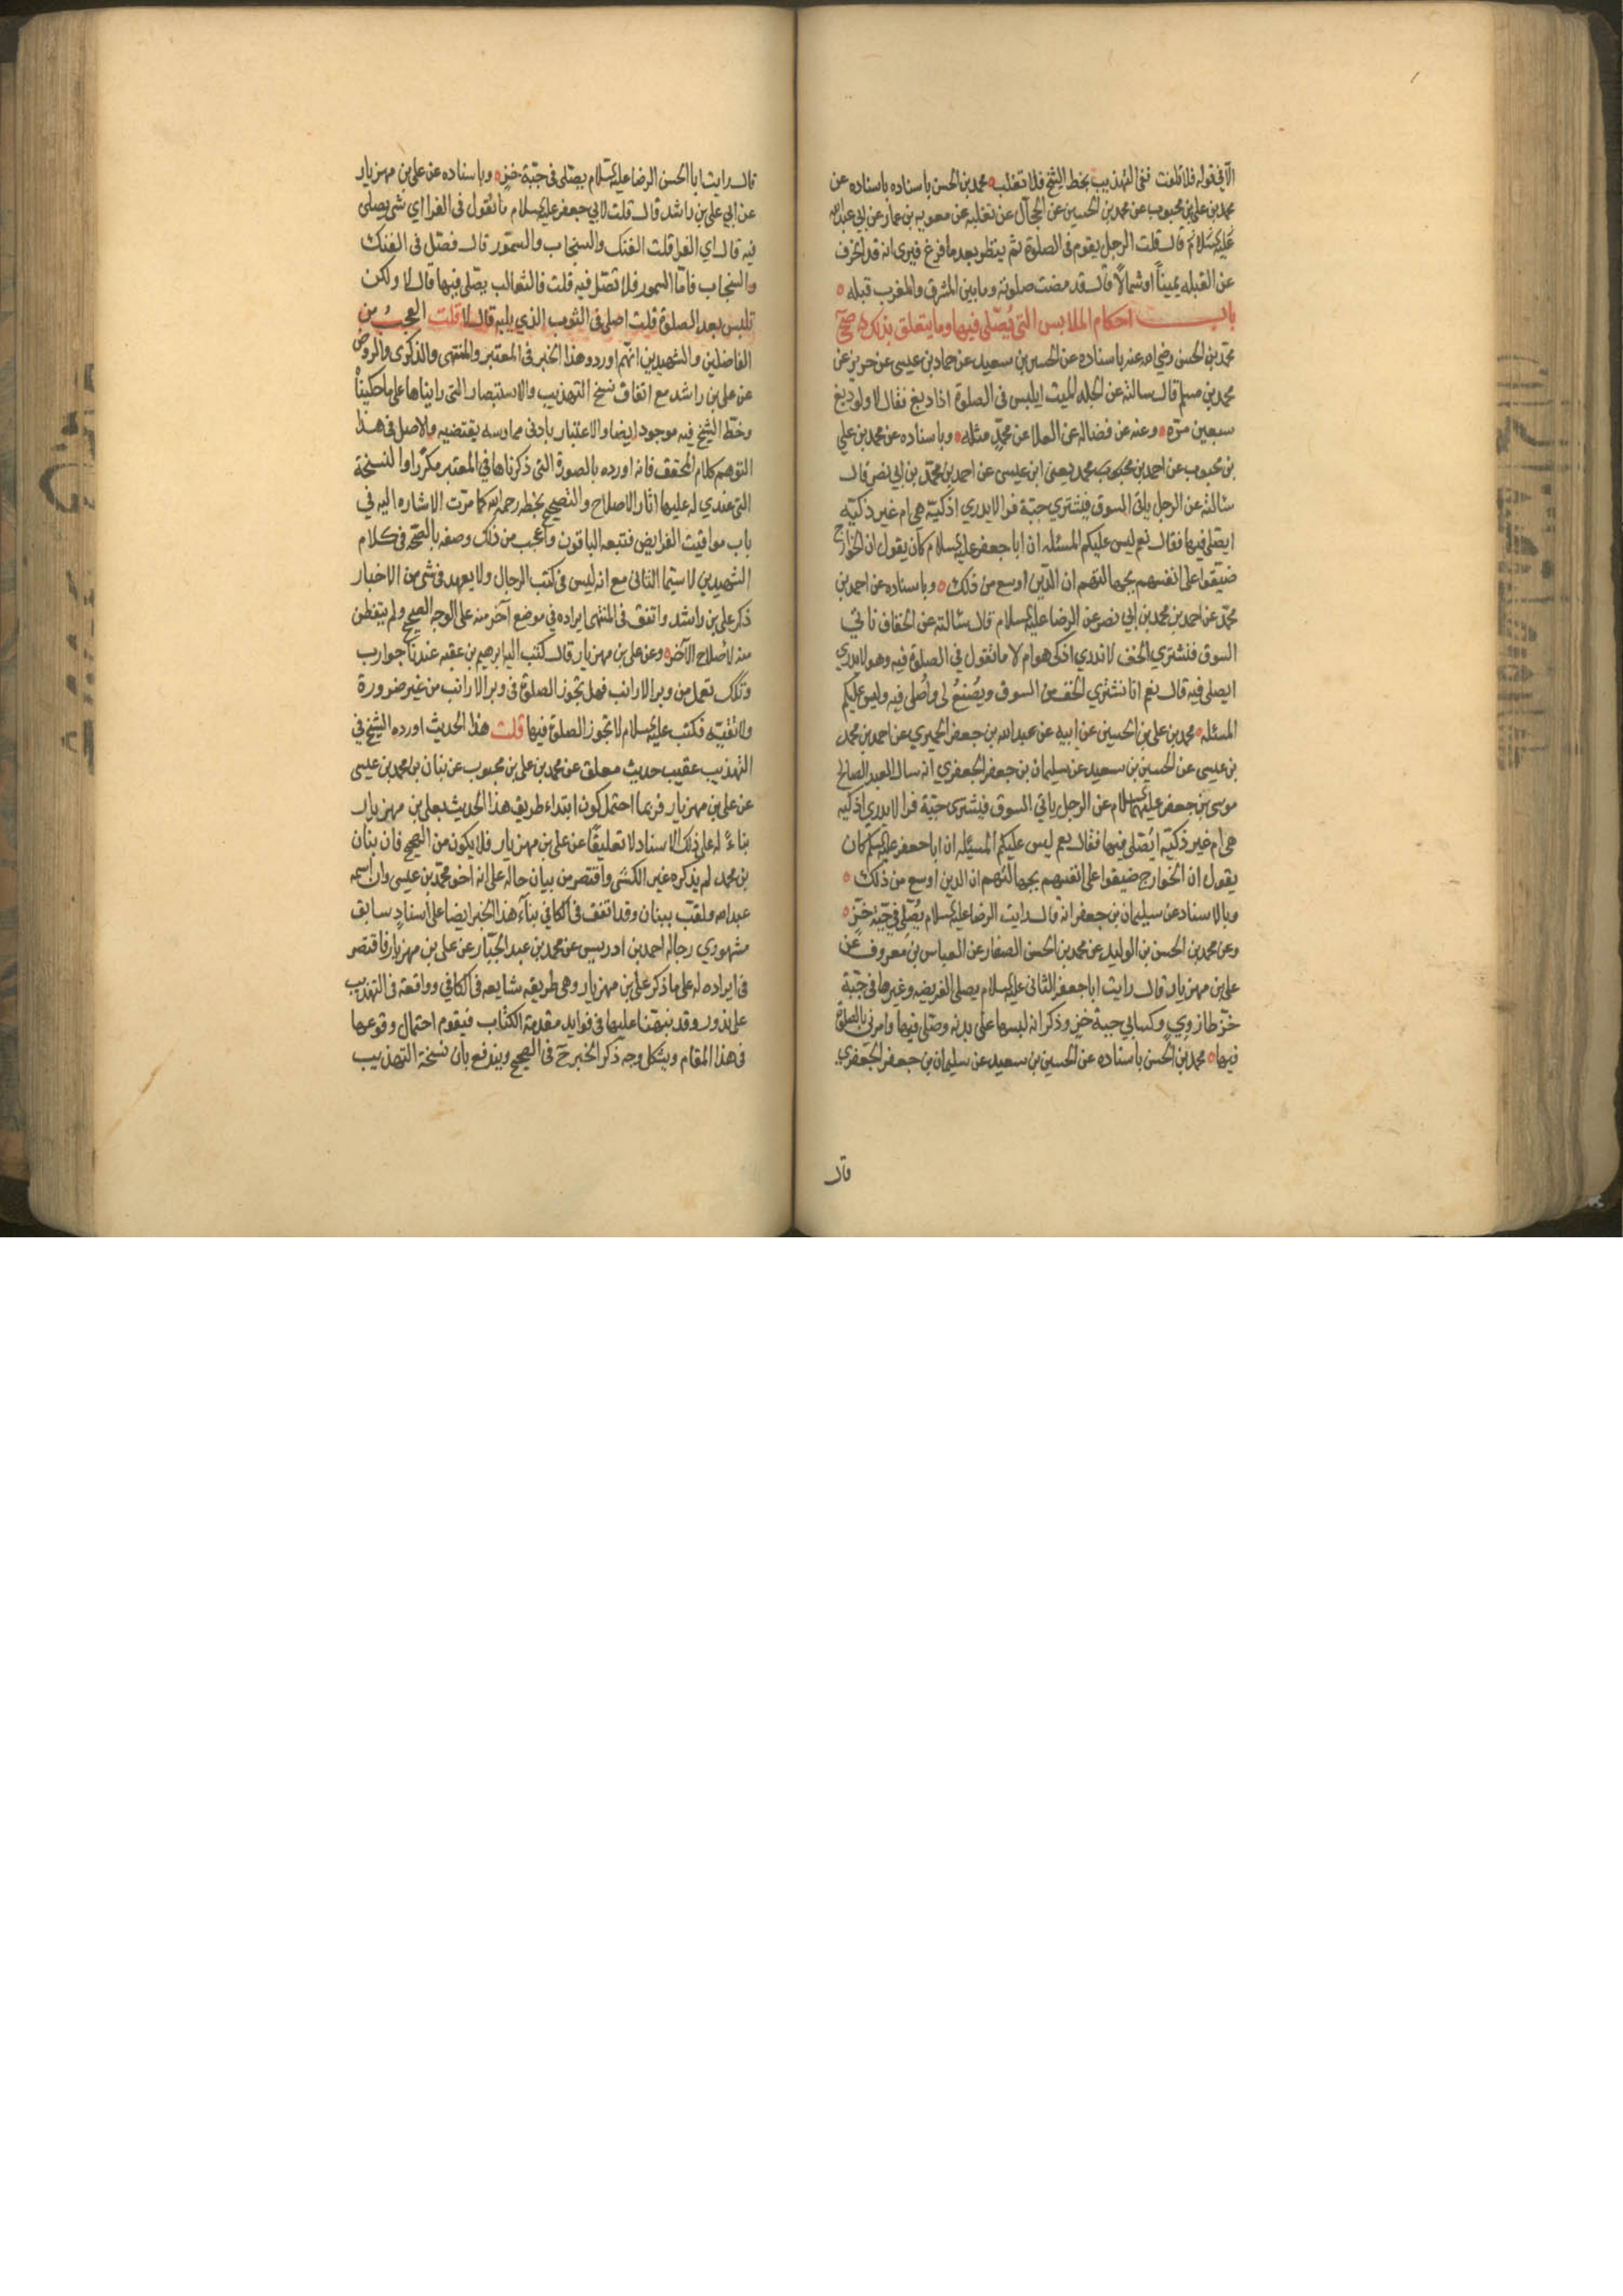 الا في قوله فلا تلفت ففي التهذيب بخط الشيخ فلا تقلب محمد بن الحسن باسناده باسناده عن
محمد بن علي بن محبوب عن محمد بن الحسين عن الحجال عن ثعلبه عن معويه بن عمار عن ابي عبدالله
عليه السلام قال قلت الرجل يقوم في الصلوة ثم ينظر بعد ما فرغ فيرى انه قد انحرف
عن القبله يميناً او شمالاً قال قد مضت صلوته وما بين المشرق والمغرب قبله
باب احكام الملابس التي يُصَلّى فيها وما يتعلق بذلك صحي
محمد بن الحسن رضي الله عنه باسناده عن الحسين بن سعيد عن حماد بن عيسى عن حريز عن
محمد بن مسلم قال سالته عن الجلد الميت ايلبس في الصلوة اذا دبغ فقال لا ولو دبغ
سبعين مرّه وعنه عن فضاله عن العلا عن محمّدٍ مثله وباسناده عن محمد بن علي
بن محبوب عن احمد بن محمد يعنى ابن عيسى عن احمد بن محمّد بن ابي نصر قال
سئالته عن الرجل ياتي السوق فيشتري جبّة فرا لا يدري اذكيّة هي ام غير ذكيّه
ايصلى فيها فقال نعم ليس عليكم المسئله ان ابا جعفر عليه السلام كان يقول ان الخوارج
ضيّقوا على انفسهم بجهالتهم ان الدّين اوسع من ذلك وباسناده عن احمد بن
محمّد عن احمد بن محمد بن ابي نصر عن الرضا عليه السلام قال سئالته عن الخفاف ناتي
السوق فنشتري الخف لا ندري اذكى هو ام لا ما تقول في الصلوة فيه وهو لا يدري
ايصلى فيه قال نعم انا نشتري الخف من السوق ويُصْنَعُ لي واُصلى فيه وليس عليكم
المسئله محمد بن علي بن الحسين عن ابيه عن عبدالله بن جعفر الحميري عن احمد بن محمد
بن عيسى عن الحسين بن سعيد عن سليمان بن جعفر الجعفري انه سال العبد الصالح
موسى بن جعفر عليهما السلام عن الرجل ياتي السوق فيشترى جبّة فرا لا يدري اذكيه
هي ام غير ذكيّه ايُصَلى فيها فقال نعم ليس عليكم المسئله ان ابا جعفر عليه السلم كان
يقول ان الخوارج ضيقوا على انفسهم بجهالتهم ان الدين اوسع من ذلك
وبالاسناد عن سليمان بن جعفر انه قال رايت الرضا عليه السلام يُصَلّي في جبّة خزّ
وعن محمد بن الحسن بن الوليد عن محمد بن الحسن الصفار عن العباس بن معروف عن
علي بن مهزيار قال رايت ابا جعفر الثاني عليه السلام يصلى الفريضه وغيرها في جبّة
خزّ طاروي وكساني جبة خز وذكر انه لبسها على بدنه وصلّى فيها وامرني بالصلوة
فيها محمد بن الحسن باسناده عن الحسين بن سعيد عن سليمان بن جعفر الجعفري
قال
قال رايت ابا الحسن الرضا عليه السلام يصلى في جبّة خزٍ وباسناده عن علي بن مهزيار
عن ابي علي بن راشد قال قلت لابي جعفر عليه السلام ما تقول في الفرا اي شي يصلى
فيه قال اي الفرا قلت الفنك والسنجاب والسمّور قال فصّل في الفنك
والسنجاب فامّا السمور فلا تصّل فيه قلت فالثعالب يصّلى فيها قال لا ولكن
تلبس بعد الصلوة قلت اصلى في الثوب الذي يليه قال لا قلت العجب من
الفاضلين والشهيدين انهم اوردوهذا الخبر في المعتبر والمنتهى والذكرى والروض
عن علي بن راشد مع اتفاق نسخ التهذيب والاستبصار التى رايناها على ما حكيناه
وخطّ الشيخ فيه موجود ايضا والاعتبار بادنى ممارسه يقتضيه والاصل في هذا
التوهم كلام المحقق فانه اورده بالصورة التى ذكرناها في المعتبر مكرّرا والنسخة
التى عندي له عليها اثار الاصلاح والتصحيح بخطه رحمه الله كما مرّت الاشاره اليه في
باب مواقيت الفرايض فتبعه الباقون واعجب من ذلك وصفه بالصّحه في كلام
الشهيدين لا سيّما الثاني مع انه ليس في كتب الرجال ولا يعهد في شى من الاخبار
ذكر علي بن راشد واتفق في المنتهى ايراده في موضع آخر منه على الوجه الصحيح ولم يتفطن
منه لاصلاح الآخر وعن علي بن مهزيار قال كتب اليه ابرهيم بن عقبه عندنا جوارب
وتكك تعمل من وبر الارانب فهل تجوز الصلوة في وبر الارانب من غير ضرورة
ولا تقيّه فكتب عليه السلام لا تجوز الصلوة فيها قلت هذا الحديث اورده الشيخ في
التهذيب عقيب حديث معلق عن محمد بن علي بن محبوب عن بنان بن محمد بن عيسى
عن علي بن مهزيار فربما احتمل كون ابتداء طريق هذا الحديث بعلي بن مهزيار
بناءً له على ذلك الاسناد لا تعليقًا عن علي بن مهزيار فلا يكون من الصحيح فان بنان
بن محمد لم يذكره غير الكشى واقتصر من بيان حاله على انه اخو محمّد بن عيسى وان اسمه
عبدالله ولقب ببنان وقد اتفق في الكافي بناء هذا الخبر ايضا على اسنادٍ سابق
مشهوري رجاله احمد بن ادريس عن محمد بن عبد الجبّار عن علي بن مهزيار فاقتصر
في ايراده له على ما ذكر علي بن مهزيار وهي طريقه شايعه في الكافي وواقعة في التهذيب
على ندور وقد نبهّنا عليها في فوايد مقدمة الكتاب فيقوم احتمال وقوعها
في هذا المقام ويشكل وجه ذكر الخبر ح في الصحيح ويندفع بان نسخة التهذيب